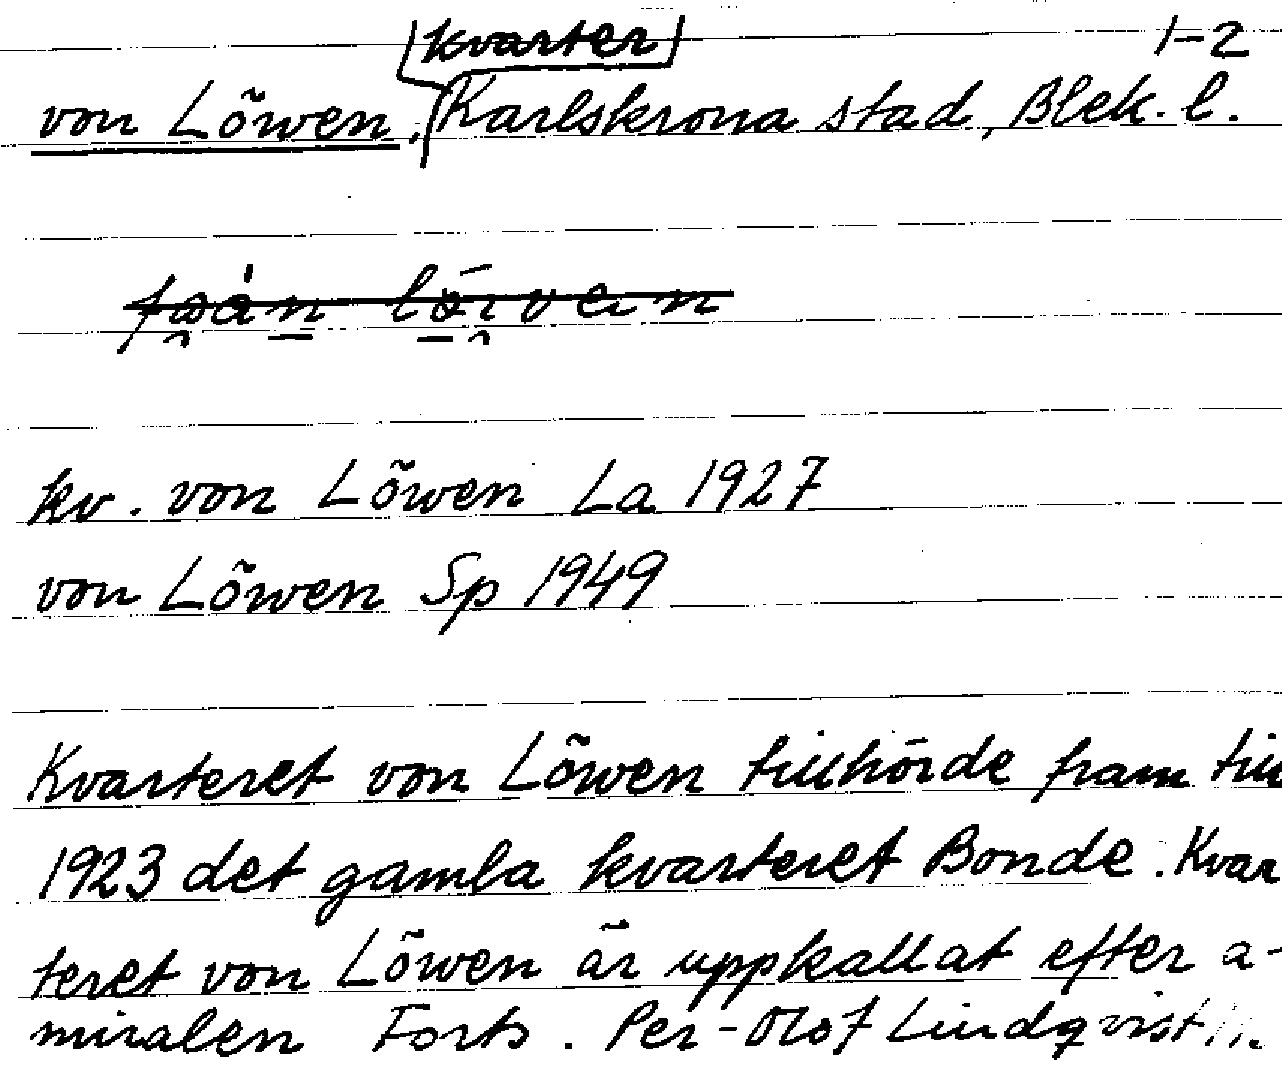 kvarter 1-2
von Löwen, Karlskrona stad, Blek. l.
kv. von Löwen La 1927
von Löwen Sp 1949
Kvarteret von Löwen tillhörde fram till
1923 det gamla kvarteret Bonde. Kvar
teret von Löwen är uppkallat efter a-
miralen Forts. Per-Olof Lindqvist